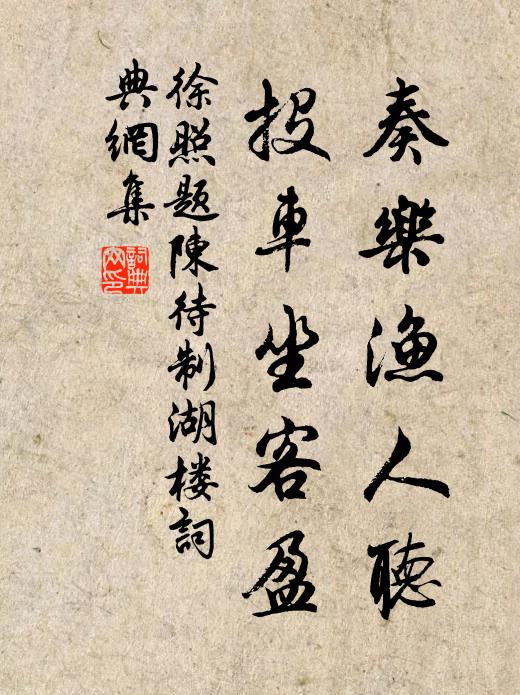 奏樂漁人聽
投車坐客盈
徐照題陳待制湖楼詞
典網集
詞典
网印